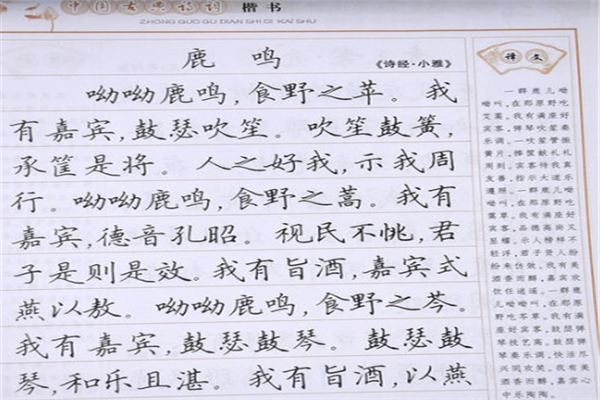 中国古典诗词 楷书
ZHONG GUO GU DIAN SHI CI KAI SHU
鹿 鸣
《诗经·小雅》
呦呦鹿鸣，食野之苹。我
有嘉宾，鼓瑟吹笙。吹笙鼓簧，
承筐是将。人之好我，示我周
行。呦呦鹿鸣，食野之蒿。我有
嘉宾，德音孔昭。视民不恌，君
子是则是效。我有旨酒，嘉宾式
燕以敖。呦呦鹿鸣，食野之芩。
我有嘉宾，鼓瑟鼓琴。鼓瑟鼓
琴，和乐且湛。我有旨酒，以燕
译文
一群鹿儿呦
呦叫，在那原野吃
艾蒿。我有满座好
宾客，弹琴吹笙奏
乐调。一吹笙管振
簧片，捧筐献礼礼
周到。宾客待我真
友善，指示大道乐
遵照。一群鹿儿呦
呦叫，在那原野吃
蒿草。我有满座好
宾客，品德高尚又
显耀。示人榜样不
轻浮，君子贤人纷
纷来仿效。我有美
酒香而醇，嘉宾欢
饮任逍遥。一群鹿
儿呦呦叫，在那原
野吃芩草。我有满
座好宾客，鼓瑟弹
琴技艺高。鼓瑟弹
琴奏乐调，快活尽
兴同欢笑。我有美
酒香而醇，嘉宾心
中乐陶陶。